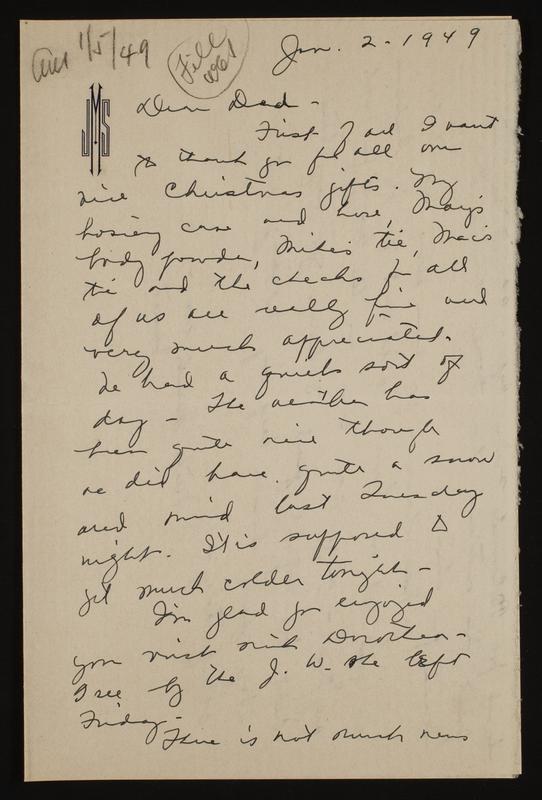 Ans 1/5/49
File
Jan. 2 - 1949
JMS
Dear Dad -
First of all I want
to thank you for all our
nice Christmas gifts. My
hosiery case and hose, Mary's
body powder, Mike's tie, Mac's
tie and the checks for all
of us are really fine and
very much appreciated.
We had a quiet sort of
day - The weather has
been quite nice though
we did have quite a snow
and wind last Tuesday
night. It is supposed to
get much colder tonight -
I'm glad you enjoyed
your visit with Dorothea -
I see by the J. W. she left
Friday -
There is not much news